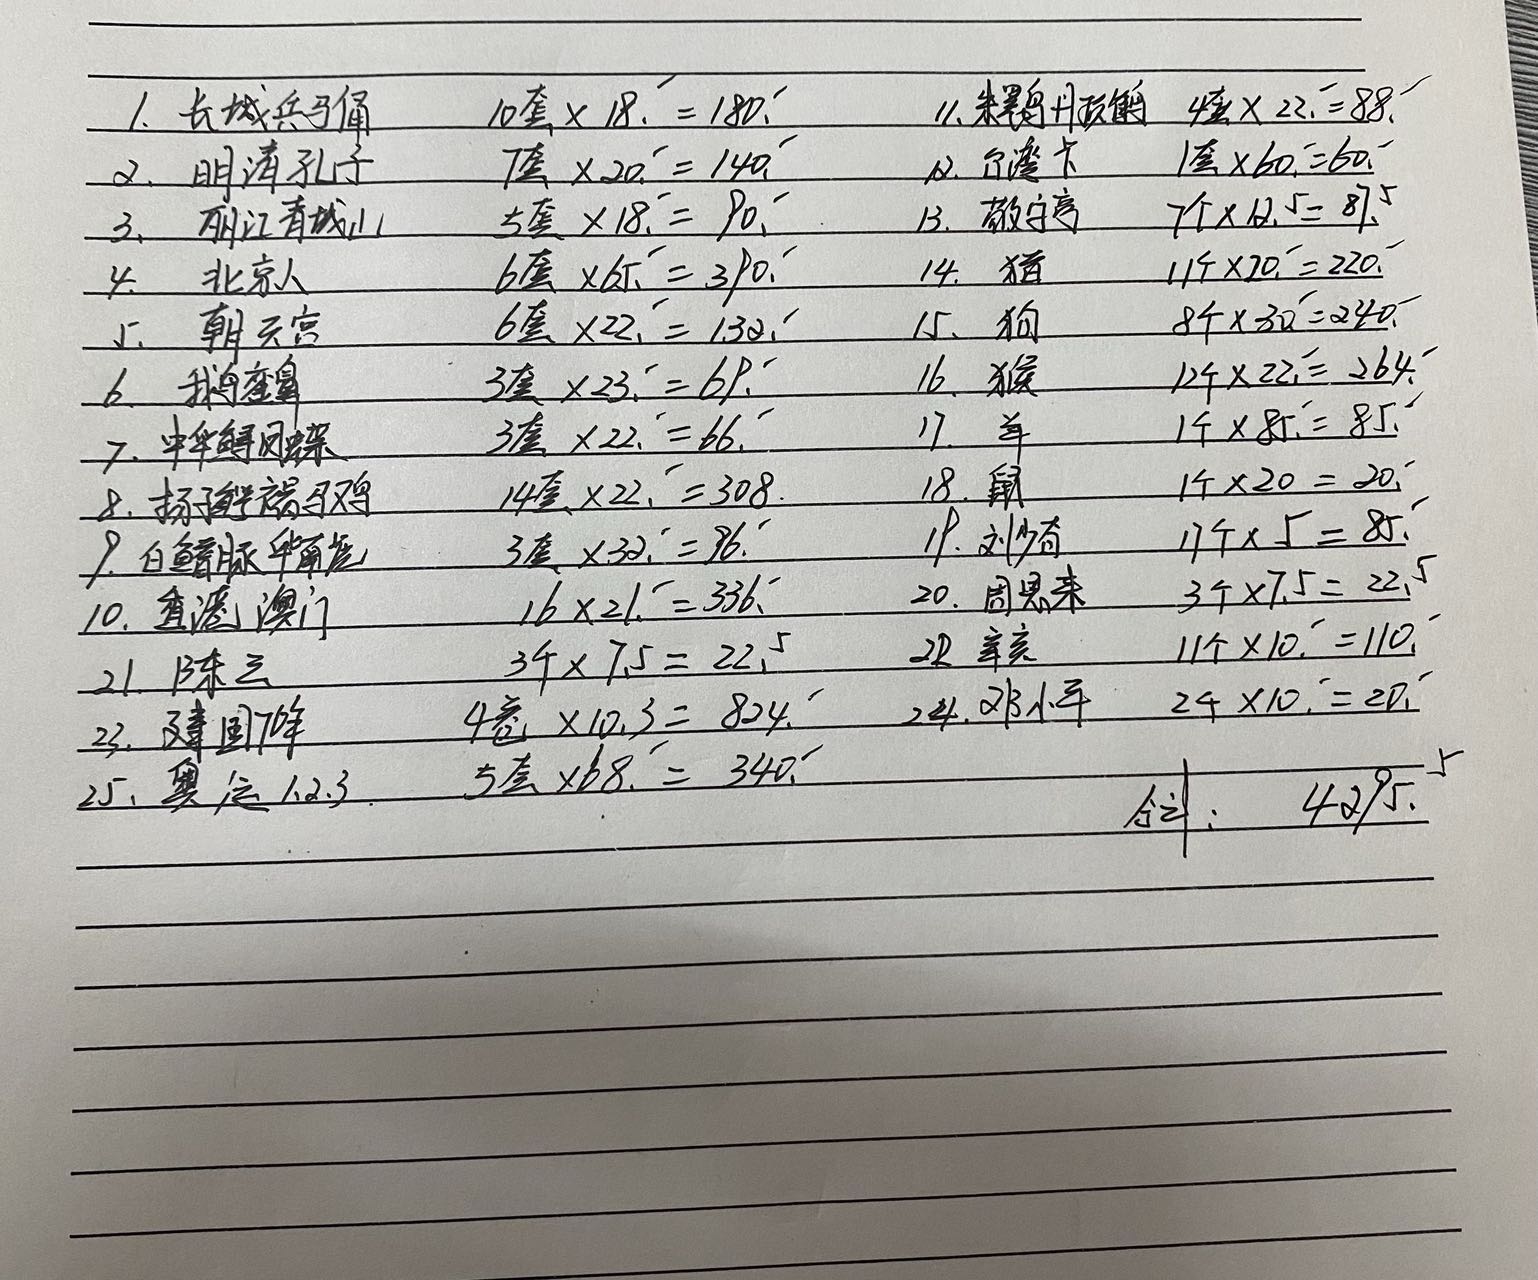 1. 长城兵马俑 10套 × 18. = 180. 11. 朱鹮丹顶鹤 4套 × 22. = 88.
2. 明清孔子 7套 × 20. = 140. 12. 台湾卡 1套 × 60. = 60.
3. 丽江青城山 5套 × 18. = 90. 13. 敬字亭 7个 × 12.5 = 87.5
4. 北京人 6套 × 65. = 390. 14. 猪 11个 × 20. = 220.
5. 朝天宫 6套 × 22. = 132. 15. 狗 8个 × 30. = 240.
6. 3套 × 23. = 69. 16. 猴 12个 × 22. = 264.
7. 中华鲟凤蝶 3套 × 22. = 66. 17. 羊 1个 × 85. = 85.
8. 扬子鳄褐马鸡 14套 × 22. = 308. 18. 鼠 1个 × 20 = 20.
9. 白鳍豚 3套 × 32. = 96. 19. 刘少奇 17个 × 5 = 85.
10. 香港澳门 16 × 21. = 336. 20. 周恩来 3个 × 7.5 = 22.5
21. 陈云 3个 × 7.5 = 22.5 22. 辛亥 11个 × 10. = 110.
23. 建国70年 4卷 × 10.3 = 824. 24. 邓小平 2个 × 10. = 20.
25. 奥运1.2.3. 5套 × 68. = 340.
合计: 4295.5